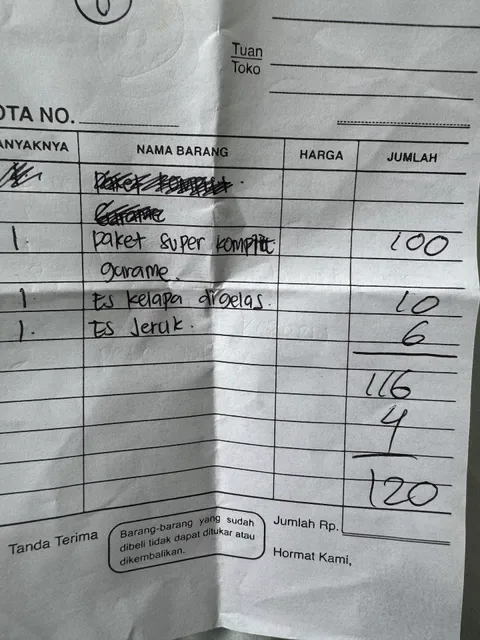 Tuan
Toko
OTA NO.
ANYAKNYA NAMA BARANG HARGA JUMLAH
1. paket super komplit 100
gurame.
1 Es kelapa digelas. 10
1. Es Jeruk. 6
116
4
120
Tanda Terima
Barang-barang yang sudah
dibeli tidak dapat ditukar atau
dikembalikan.
Jumlah Rp.
Hormat Kami,